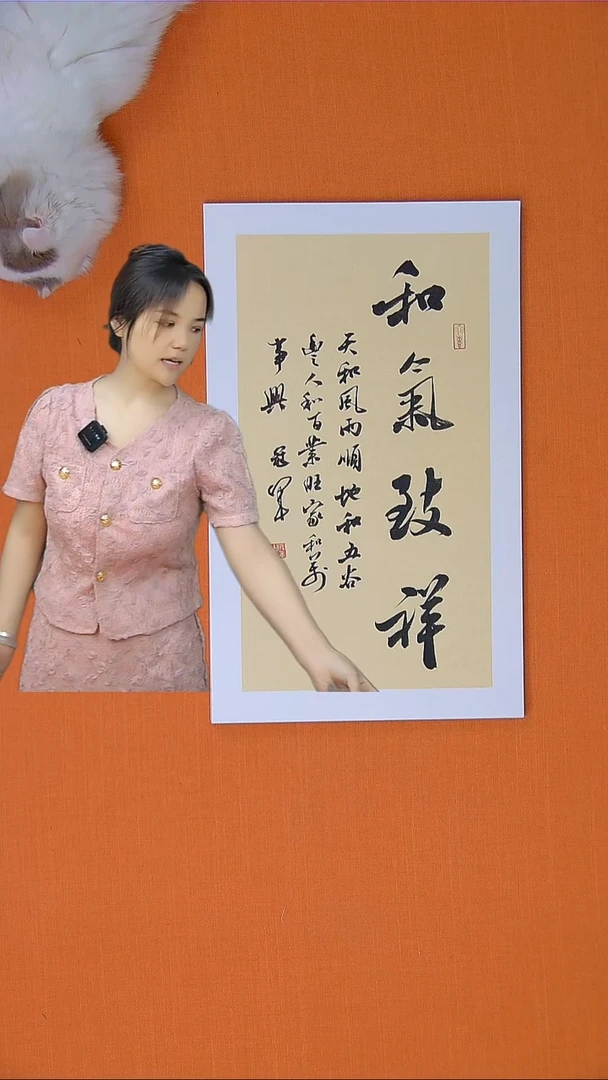 和氣致祥
天和風雨順地和五谷
豐人和百業旺家和萬
事興